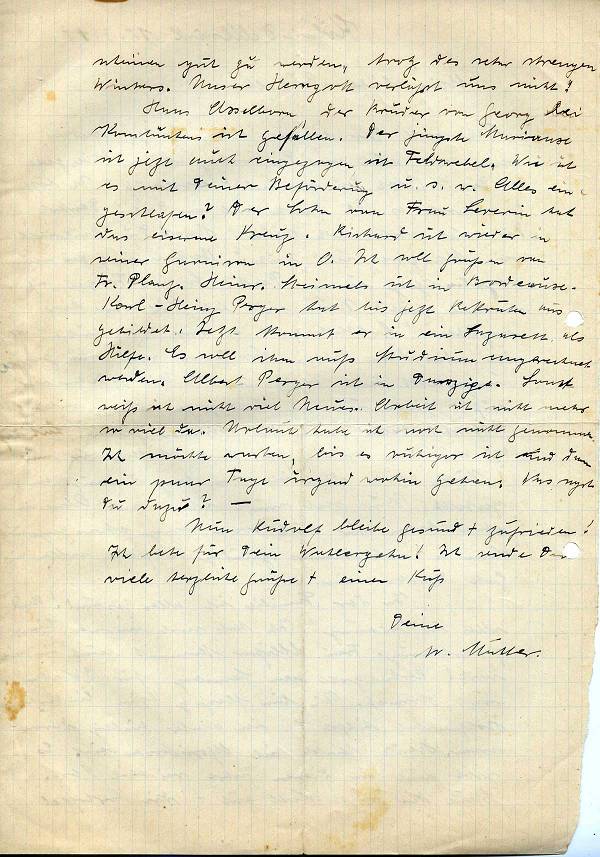 scheinen gut zu werden, trotz des sehr strengen
Winters. Unser Herrgott verläßt uns nicht!
Hans Asselborn, der Bruder von Georg bei
Konstantin ist gefallen. Der jüngste
ist jetzt auch eingezogen ist Feldwebel. Wie ist
es mit Deiner Beförderung u. s. w. Alles ein-
geschlafen? Der Sohn von Frau Severin hat
das eiserne Kreuz. Richard ist wieder in
seiner Garnison in O. Ich soll grüßen von
Fr. Planz. Heinr. Steimels ist in Bordeaux.
Karl-Heinz Perger hat bis jetzt Rekruten aus
gebildet. Jetzt kommt er in ein Lazarett als
Hilfe. Es soll ihm aufs Studium angerechnet
werden. Albert Perger ist in Danzig. Sonst
weiß ich nicht viel Neues. Arbeit ist nicht mehr
so viel da. Urlaub habe ich noch nicht genommen.
Ich möchte warten, bis es ruhiger ist und dann
ein paar Tage irgend wohin gehen. Was sagst
Du dazu? —
Nun Rudolf bleibe gesund + zufrieden!
Ich bete für Dein Wohlergehn! Ich sende Dir
viele herzliche Grüße + einen Kuß
Deine
Mutter.